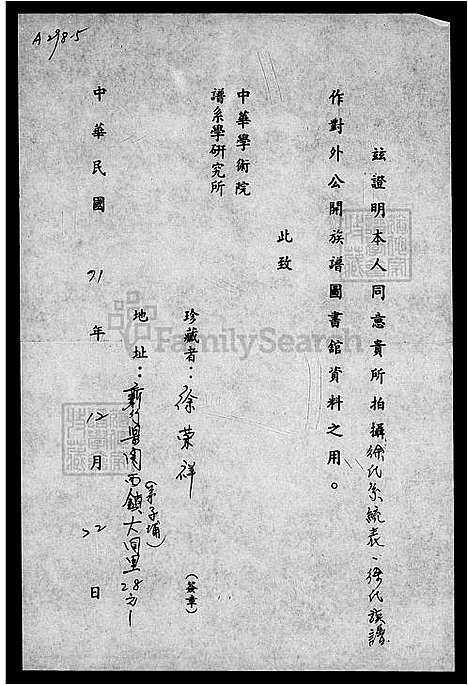 A2985
茲證明本人同意貴所拍攝徐氏系統表、徐氏族譜
作對外公開族譜圖書館資料之用。
此致
中華學術院
譜系學研究所
珍藏者：徐榮祥（簽章）
地址：新竹縣關西鎮大同里28之1
中華民國71年12月22日
FamilySearch